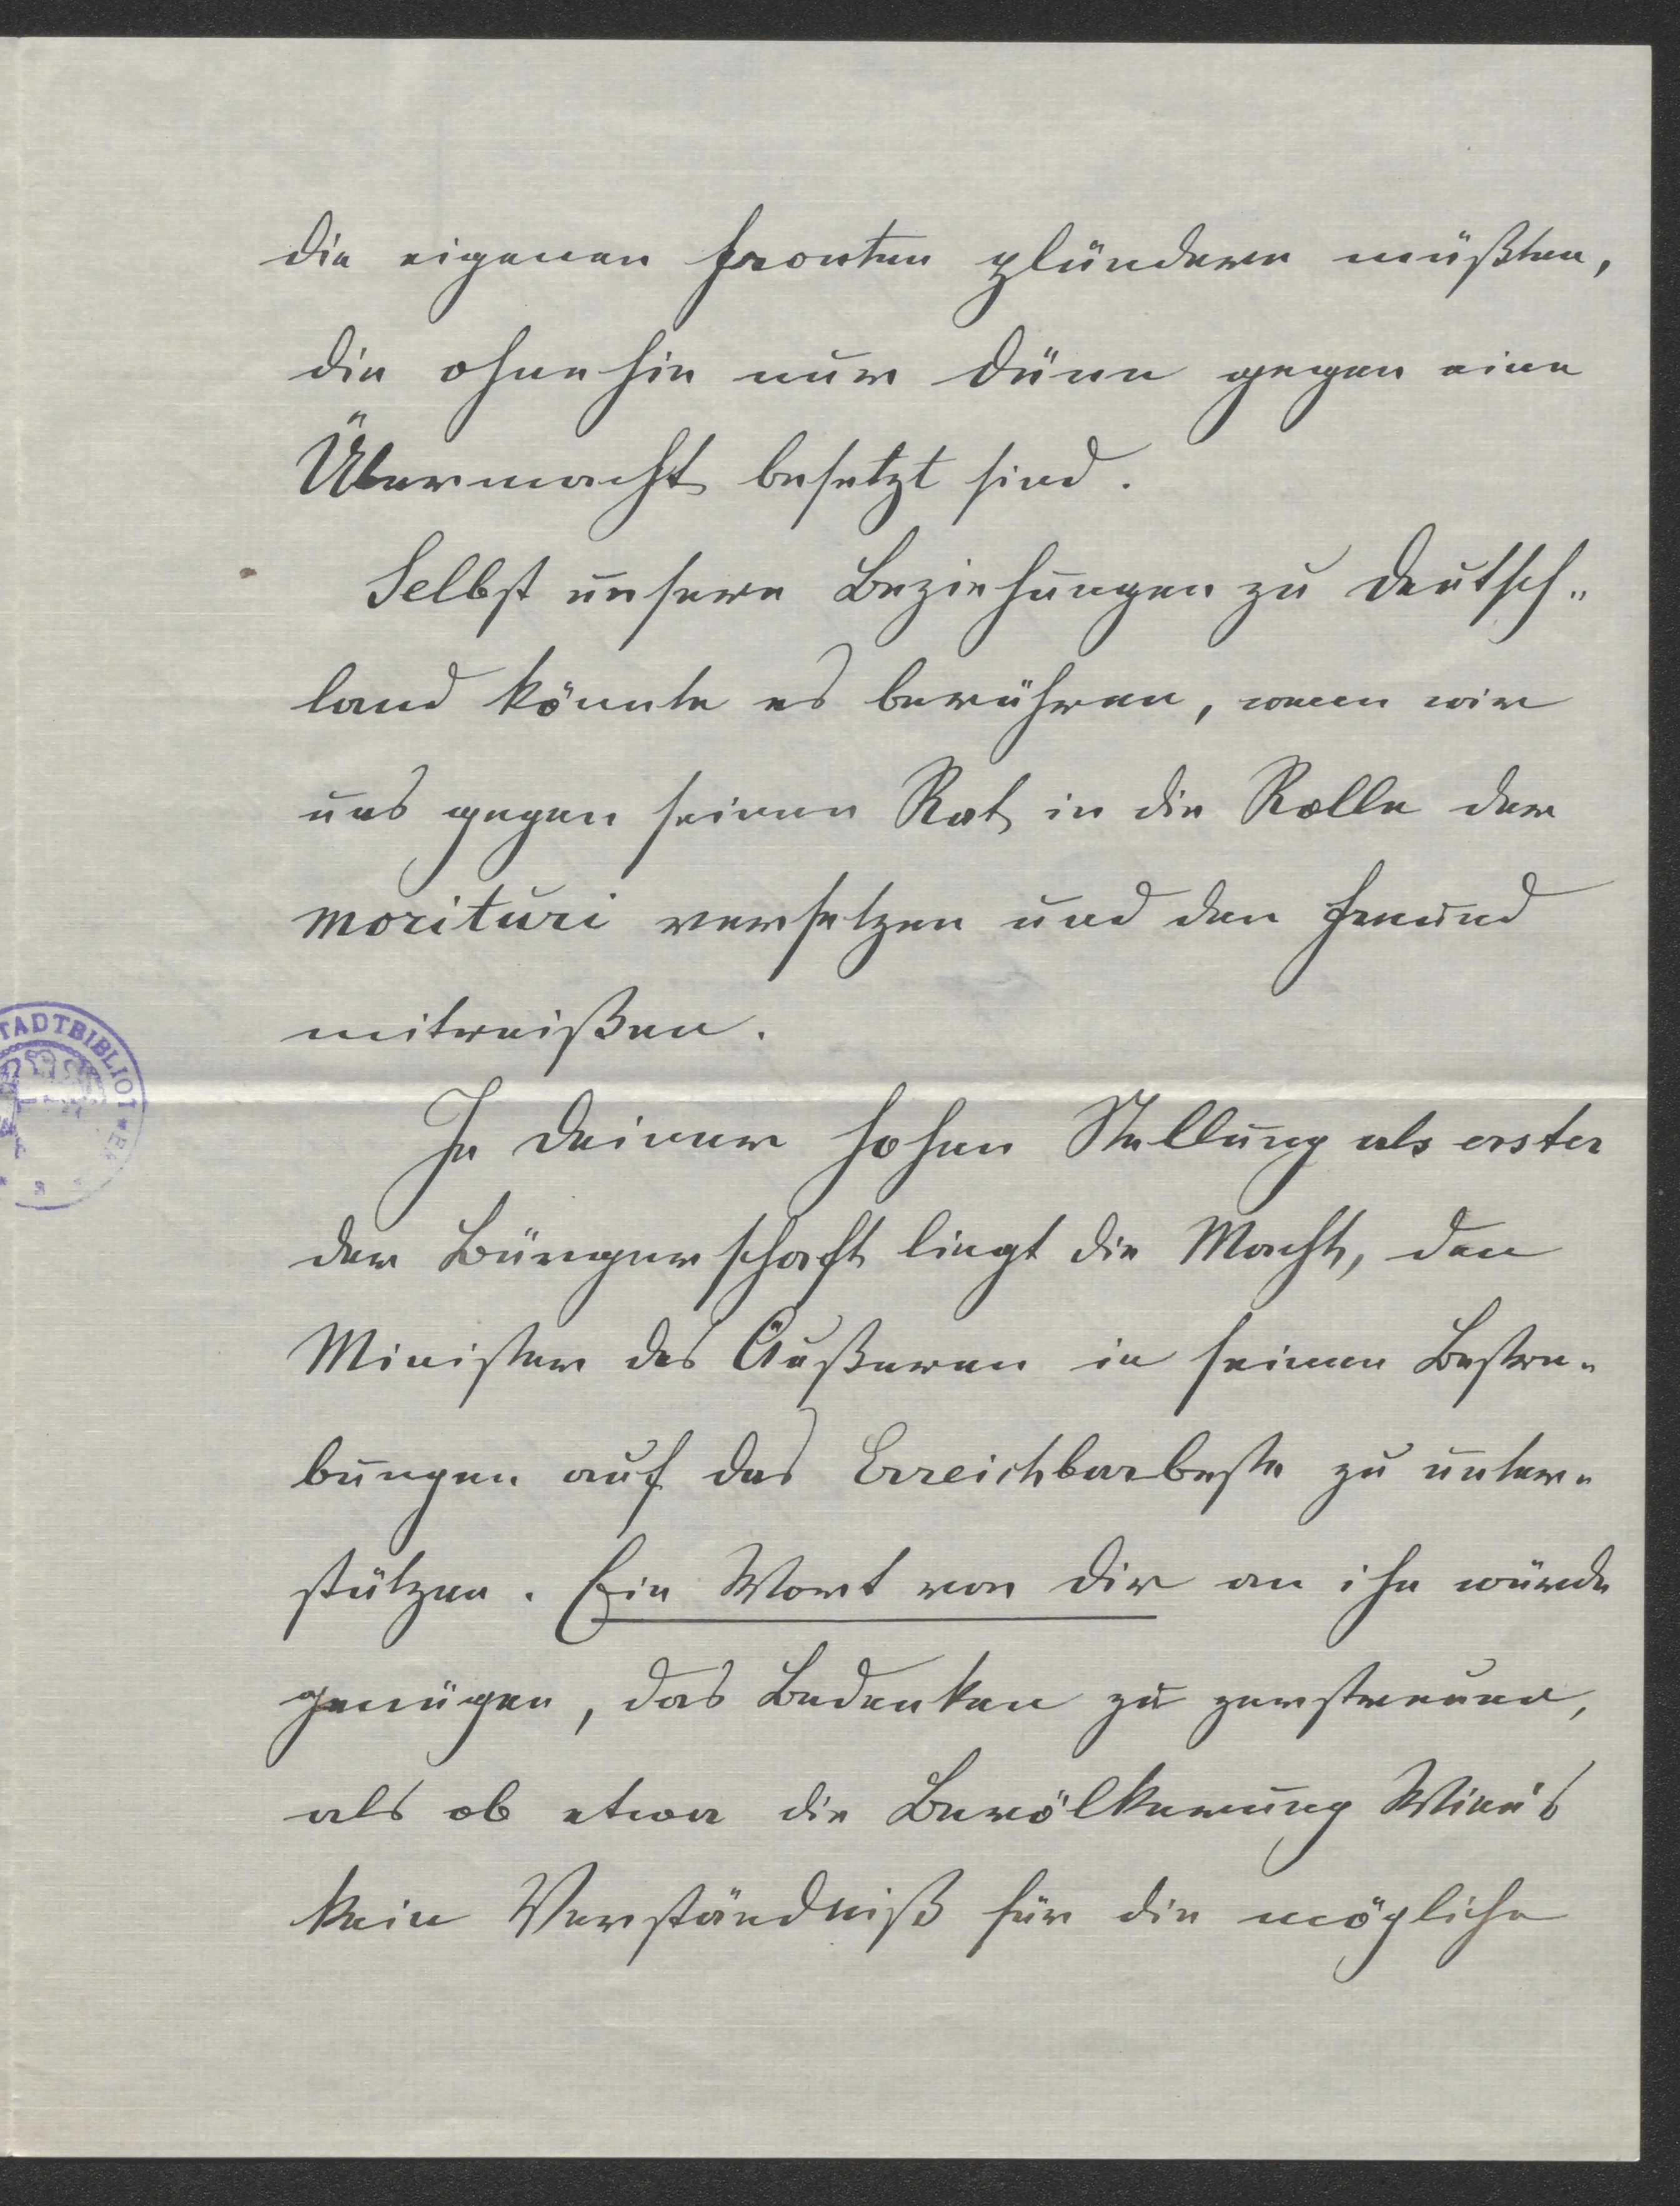 die eigenen Fronten plündern müßten,
die ohnehin nur dünn gegen eine
Übermacht besetzt sind.
Selbst unsere Beziehungen zu Deutsch„
land könnte es berühren, wenn wir
uns gegen seinen Rat in die Rolle der
morituri versetzen und den Freund
mitreißen.
In Deiner hohen Stellung als erster
der Bürgerschaft liegt die Macht, den
Minister des Äußeren in seinen Bestre„
bungen auf das Erreichbarbeste zu unter„
stützen. Ein Wort von Dir an ihn würde
genügen, das Bedenken zu zerstreuen,
als ob etwa die Bevölkerung Wien's
kein Verständniß für die mögliche
TADTBIBLIOT